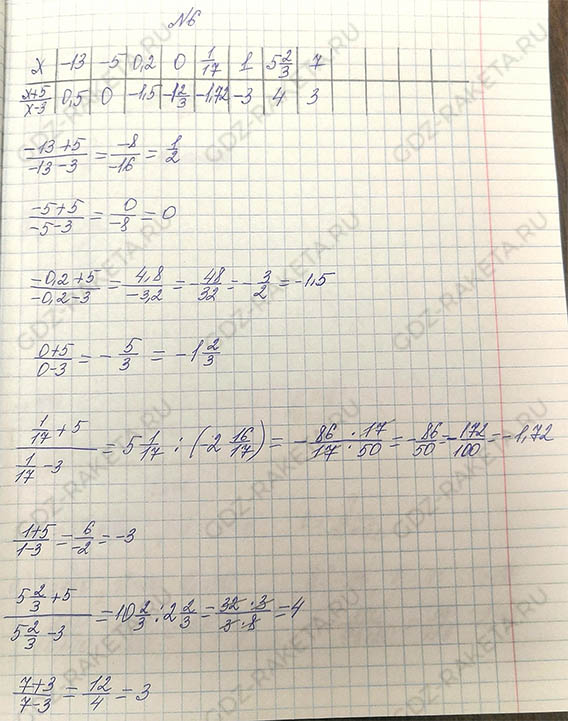 №6
x -13 -5 0,2 0 1/17 1 5 2/3 7
x+5/x-3 0,5 0 -1,5 -1 2/3 -1,72 -3 4 3
-13+5/-13-3 = -8/-16 = 1/2
-5+5/-5-3 = 0/-8 = 0
-0,2+5/-0,2-3 = 4,8/-3,2 = -48/32 = -3/2 = -1,5
0+5/0-3 = -5/3 = -1 2/3
1/17+5/1/17-3 = 5 1/17 : (-2 16/17) = -86·17/17·50 = -86/50 = -172/100 = -1,72
1+5/1-3 = 6/-2 = -3
5 2/3+5/5 2/3-3 = 10 2/3 : 2 2/3 = 32·3/3·8 = 4
7+3/7-3 = 12/4 = 3
GDZ-RAKETA.RU